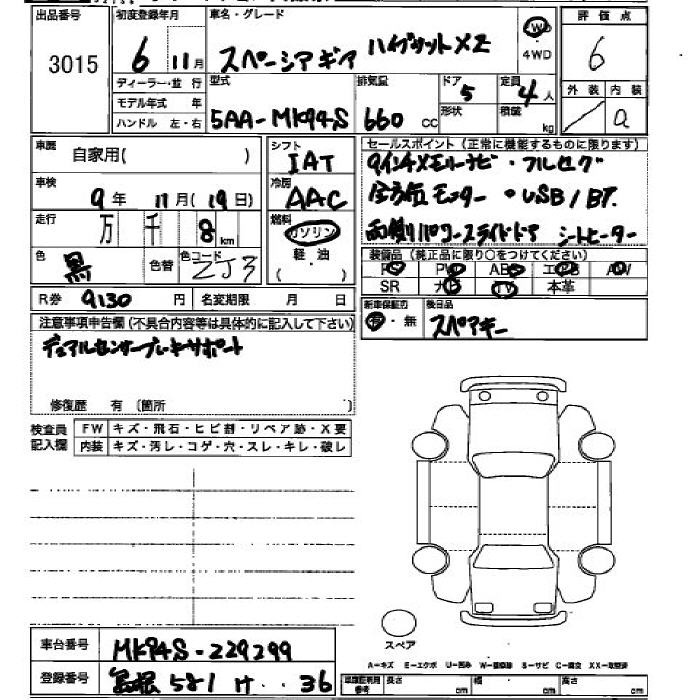 出品番号 初度登録年月 車名・グレード 評価点
3015 6 11月 スペーシアギア ハイブリットXZ 2WD 4WD 6
ディーラー・並行 型式 排気量 ドア 定員 外装 内装
モデル年式 年 5AA-MK94S 660 CC 5 4人 a
ハンドル 左・右 形状 積載 kg
車歴 自家用( ) シフト IAT セールスポイント(正常に機能するものに限ります)
車検 9年 11月(19日) 冷房 AAC 9インチメモリーナビ・フルセグ
走行 万 千 8km 燃料 ガソリン 軽・油 全方位モニター・USB/BT.
両側パワースライドドア シートヒーター
色 黒 色替 色コード ZJ3 装備品(純正品に限り○をつけてください)
PS PW ABS エアB AW
SR ナビ TV 本革
R券 9130円 名変期限 月 日 新車保証書 有・無 後日品 スペアキー
注意事項申告欄(不具合内容等は具体的に記入して下さい)
デュアルセンサーブレーキサポート
修復歴 有(箇所
検査員記入欄 FW キズ・飛石・ヒビ割・リペア跡・X要
内装 キズ・汚レ・コゲ・穴・スレ・キレ・破レ
スペア
車台番号 MK94S-229299
A=キズ E=エクボ U=凹み W=補修跡 S=サビ C=腐食 XX=取替済
登録番号 島根 581 け ・・36
車庫証明用参考 長さ cm 幅 cm 高さ cm